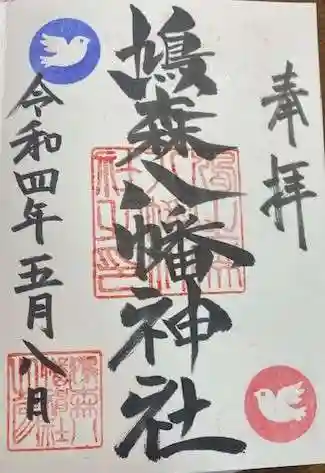 奉拝
鳩森八幡神社
令和四年五月八日